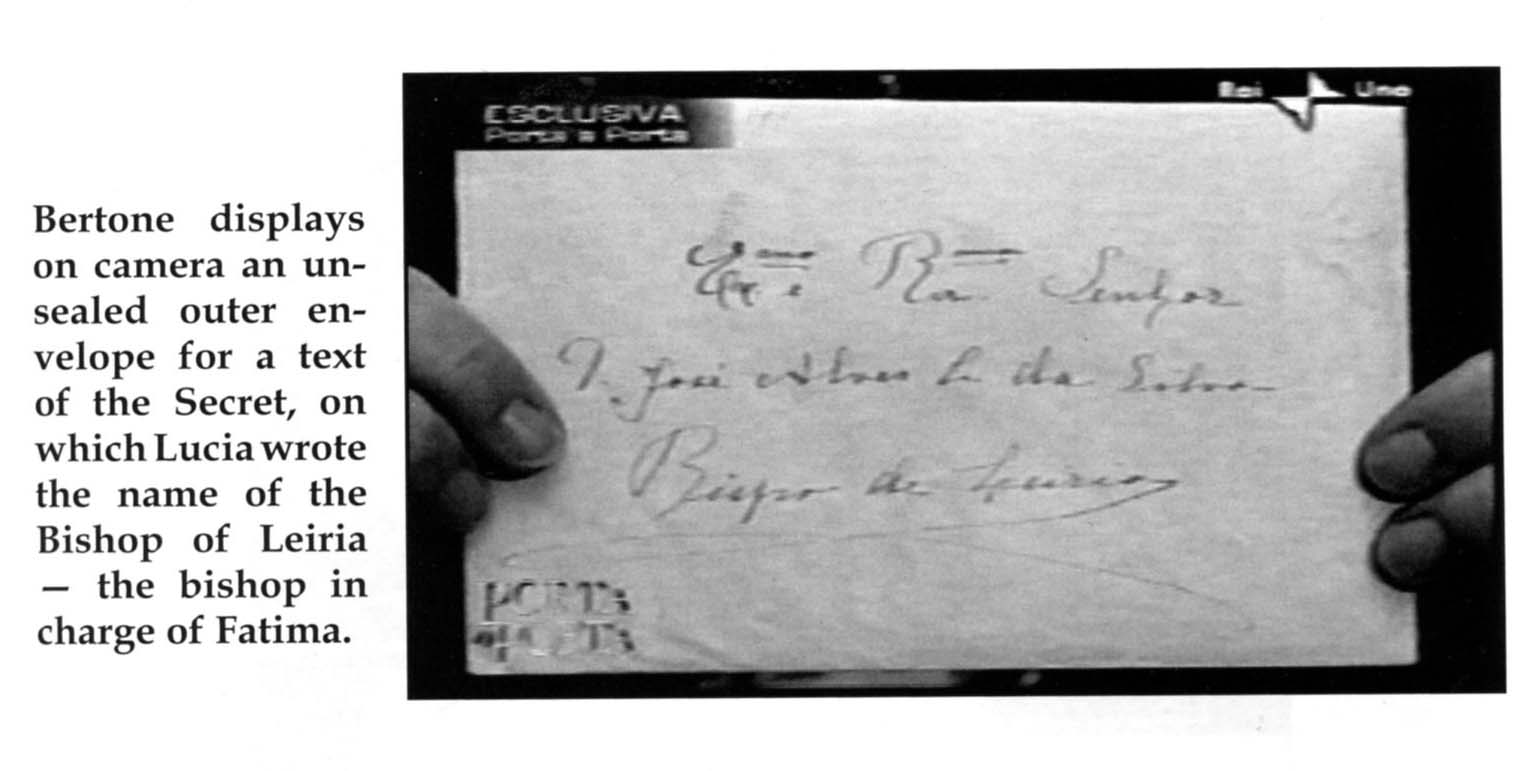 Bertone displays
on camera an un-
sealed outer en-
velope for a text
of the Secret, on
which Lucia wrote
the name of the
Bishop of Leiria
— the bishop in
charge of Fatima.
ESCLUSIVA
Porta a Porta
Rai Uno
Ex.mo e Rev.mo Senhor
D. José Alves C. da Silva
Bispo de Leiria
PORTA
a PORTA